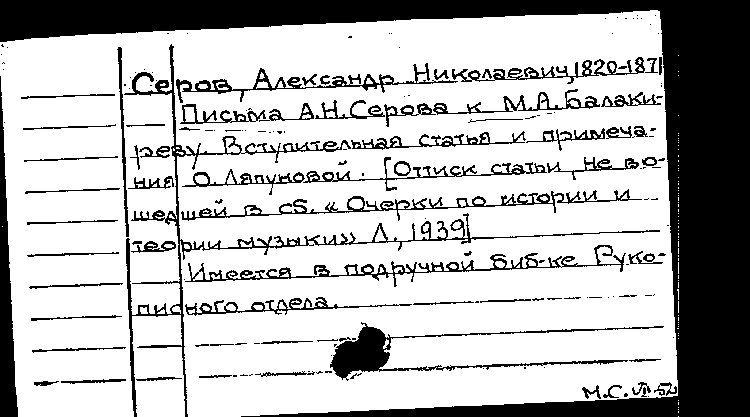 Серов, Александр Николаевич, 1820-1871
Письма А.Н.Серова к М.А.Балаки-
реву. Вступительная статья и примеча-
ния О. Ляпуновой. [Оттиск статьи, не во-
шедшей в сб. «Очерки по истории и
теории музыки» Л., 1939]
Имеется в подручной биб-ке Руко-
писного отдела.
М.С. VII-52